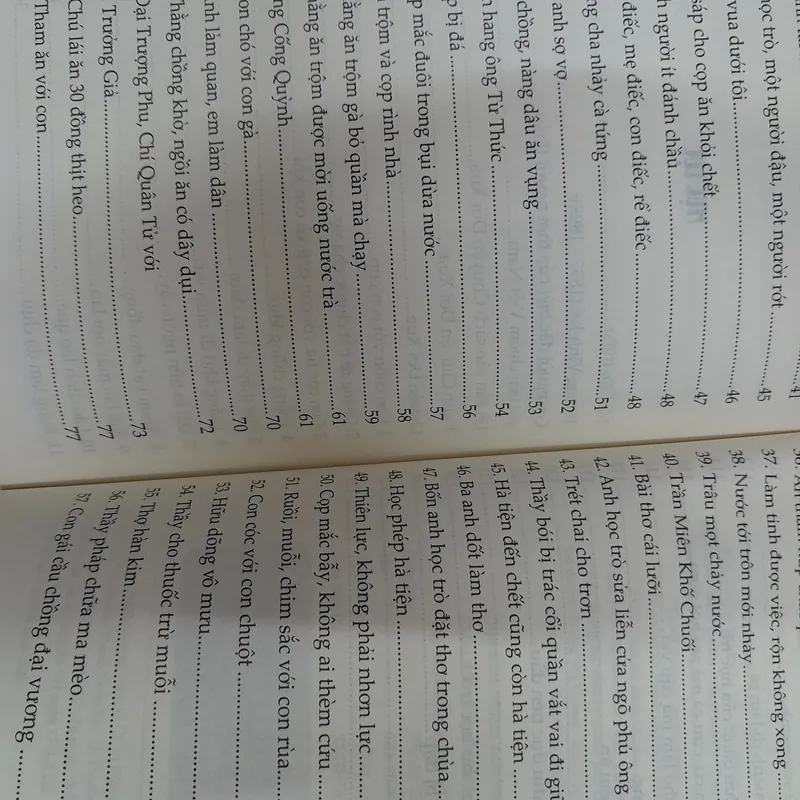 học trò, một người đậu, một người rót ........ 45
vua dưới tôi ........ 46
sáp cho cọp ăn khỏi chết ........ 47
người ít đánh chầu ........ 48
điếc, mẹ điếc, con điếc, rể điếc ........ 48
cha nhảy cà tứng ........ 51
anh sợ vợ ........ 52
chồng, nàng dâu ăn vụng ........ 53
hang ông Từ Thức ........ 54
bị đá ........ 56
mắc đuôi trong bụi dừa nước ........ 57
trộm và cọp rình nhà ........ 58
ăn trộm gà bỏ quần mà chạy ........ 59
ăn trộm được mời uống nước trà ........ 61
Cống Quỳnh ........ 61
chó với con gà ........ 70
làm quan, em làm dân ........ 70
Thằng chồng khờ, ngồi ăn có dây dụi ........ 72
Đại Trượng Phu, Chí Quân Tử với
Trưởng Giả ........ 73
Chú lái ăn 30 đồng thịt heo ........ 77
Tham ăn với con ........ 77
37. Làm tinh được việc, rộn không xong
38. Nước tới trôn mới nhảy
39. Trâu mọt chảy nước
40. Trần Miên Khố Chuối
41. Bài thơ cái lưỡi
42. Anh học trò sửa liễn cửa ngõ phủ ông
43. Trét chai cho trơn
44. Thầy bói bị trác cởi quần vắt vai đi
45. Hà tiện đến chết cũng còn hà tiện
46. Ba anh dốt làm thơ
47. Bốn anh học trò đặt thơ trong chùa
48. Học phép hà tiện
49. Thiên lực, không phải nhơn lực
50. Cọp mắc bẫy, không ai thèm cứu
51. Ruồi, muỗi, chim sắc với con rùa
52. Con cóc với con chuột
53. Hữu dõng vô mưu
54. Thầy cho thuốc trừ muỗi
55. Thợ hàn kim
56. Thầy pháp chữa ma mèo
57. Con gái cầu chồng đại vương